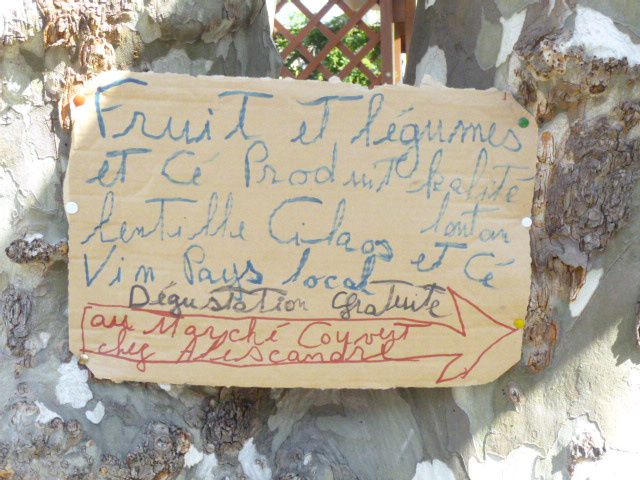 Fruit et légumes
et Cé Produit kalité
lentille Cilaos lontan
Vin Pays local et Cé
Dégustation Gratuite
au Marché Couvert
chez Alescandre